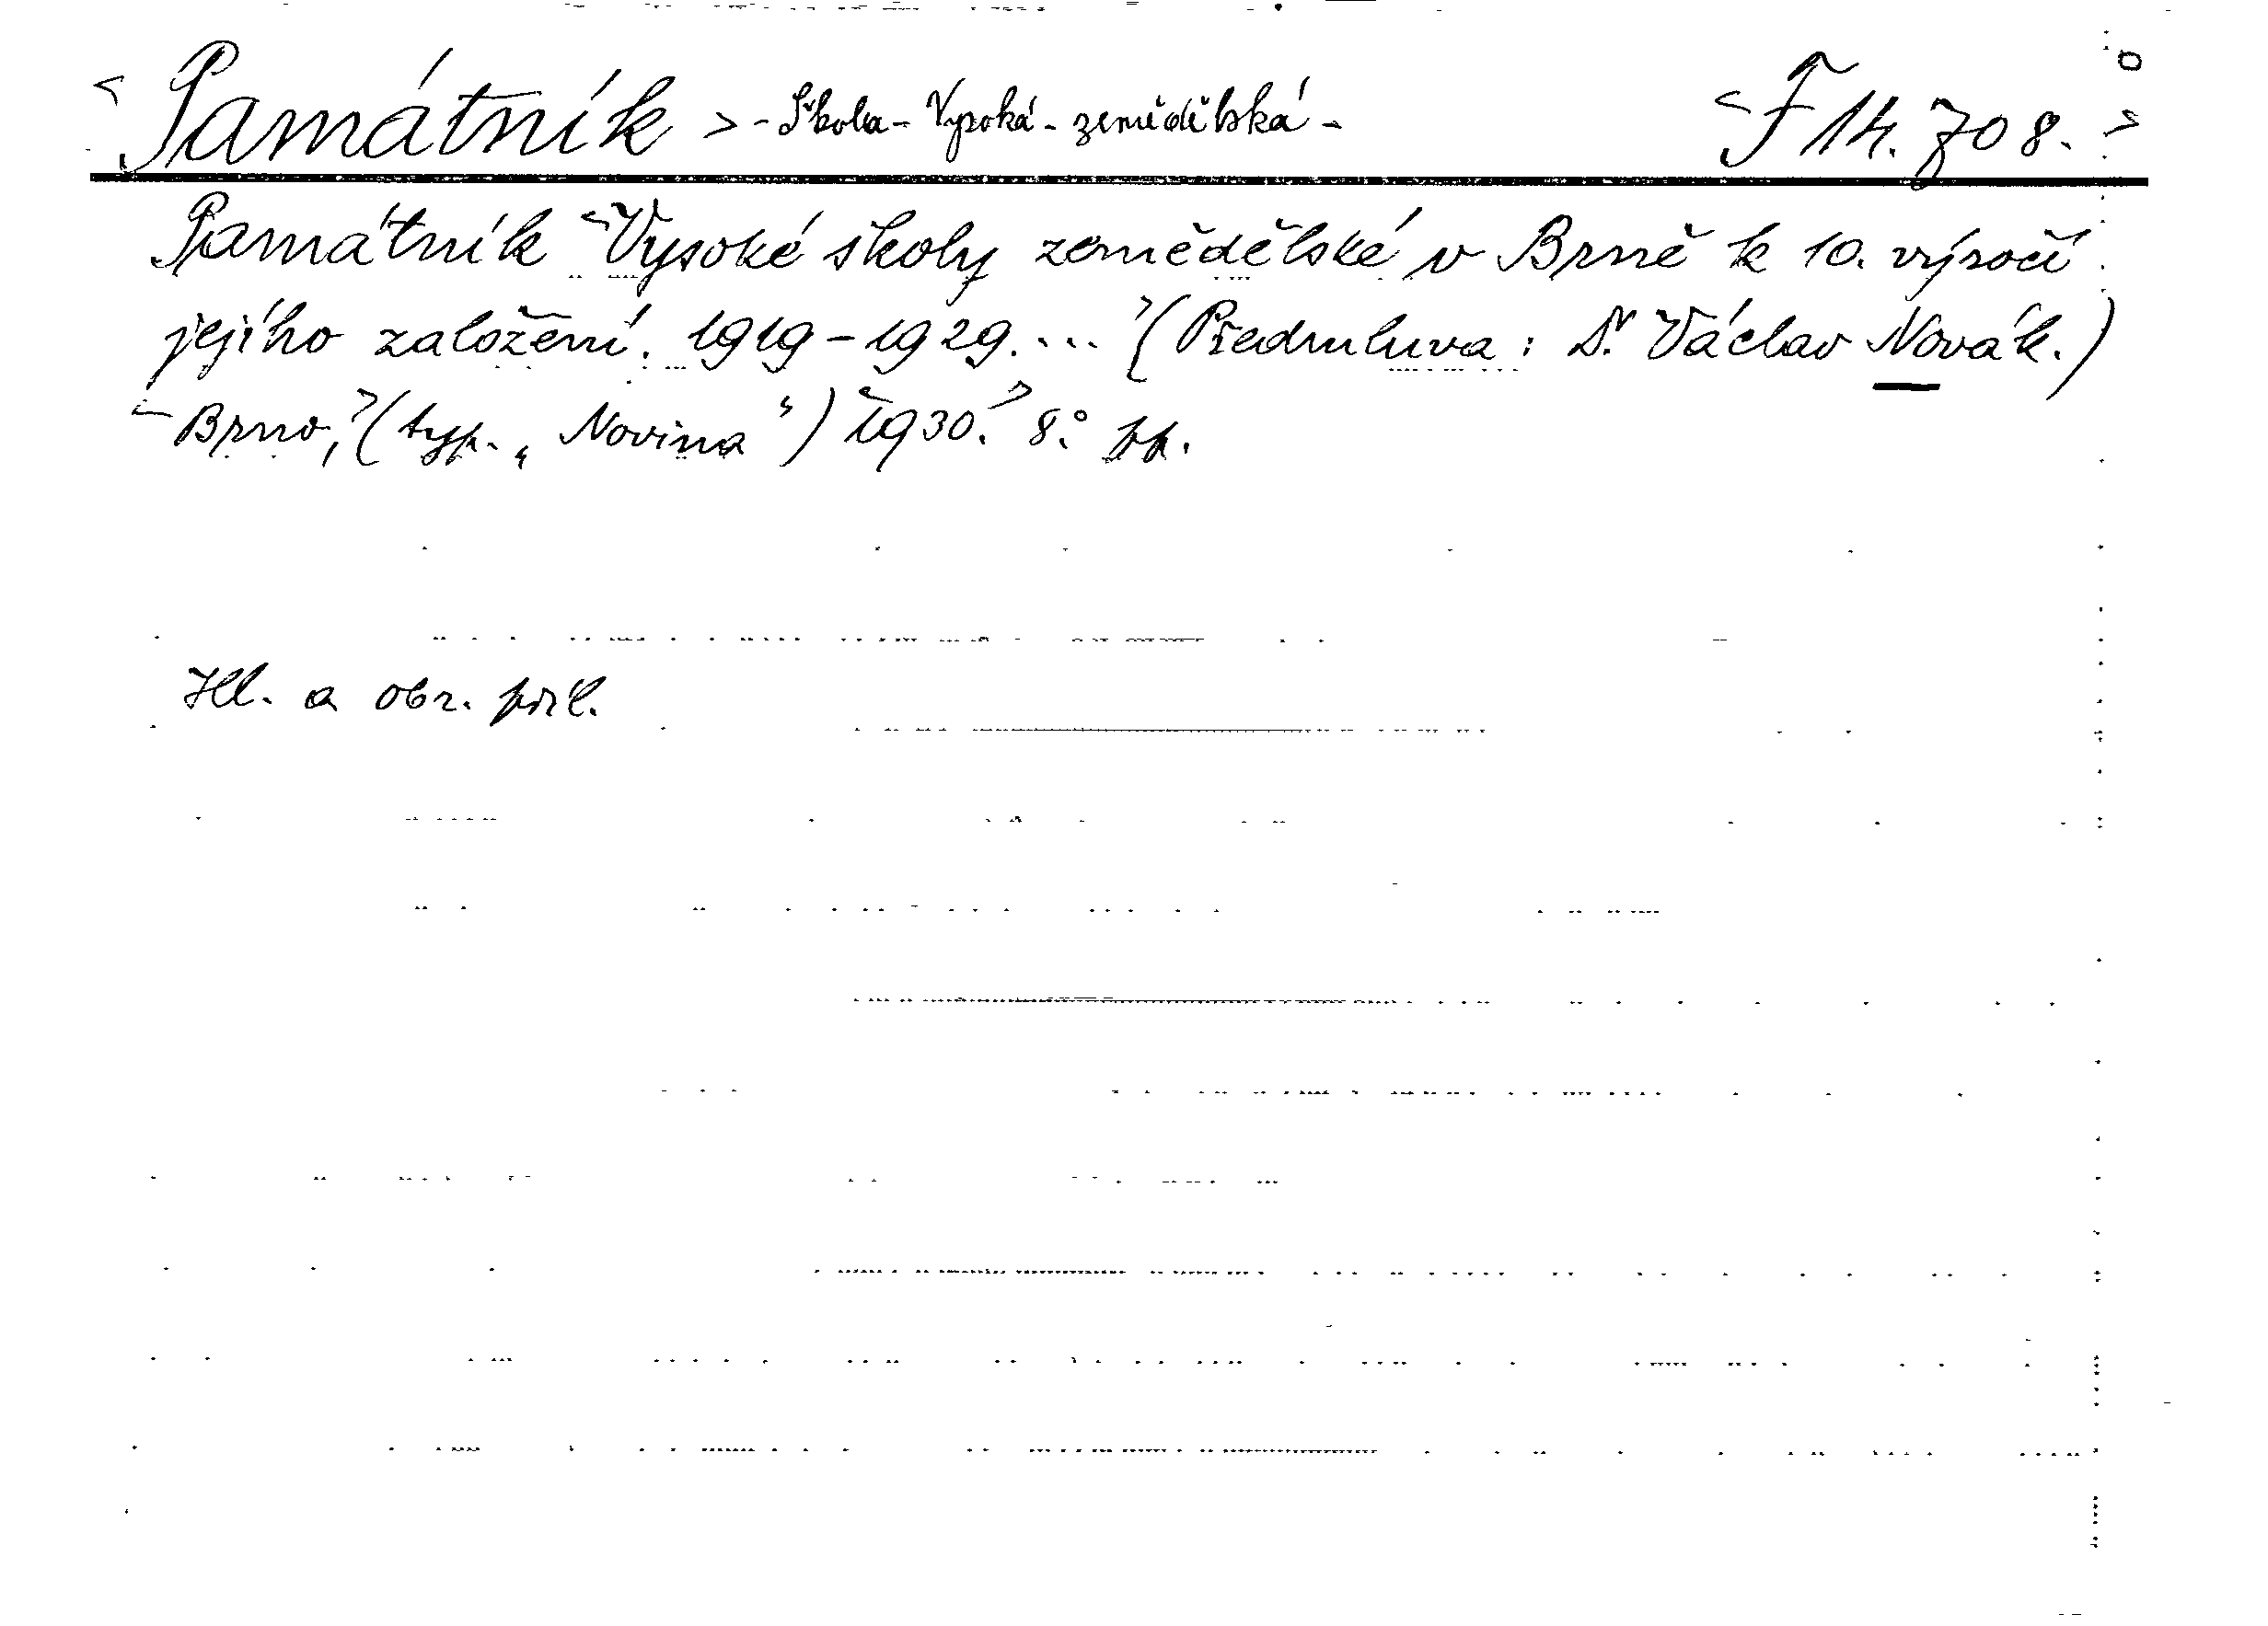 <Památník> - Škola - Vysoká - zemědělská - <F 14.708.>
Památník <Vysoké školy zemědělské v Brně k 10. výročí
jejího založení. 1919-1929....> (Předmluva: Dr. Václav Novák.)
<Brno,> (typ. „Novina") <1930.> 8.° pp.
Ill. a obr. příl.